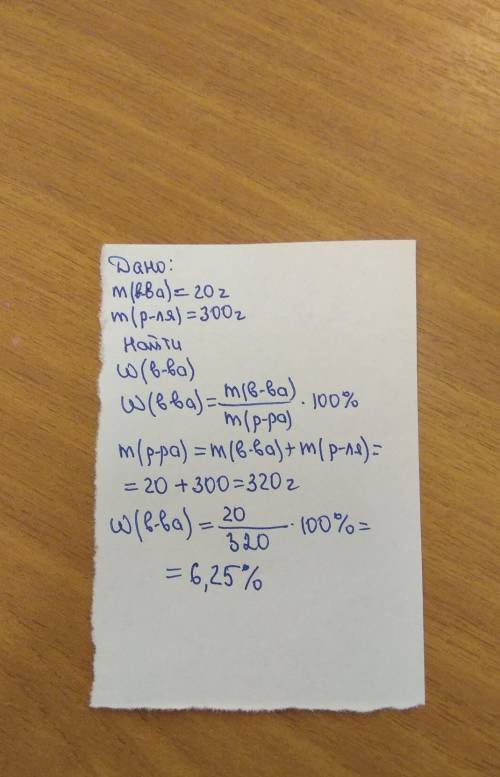 Дано:
m(в-ва)=20г
m(р-ля)=300г
Найти
ω(в-ва)
ω(в-ва)=m(в-ва)/m(р-ра)·100%
m(р-ра)=m(в-ва)+m(р-ля)=
=20+300=320г
ω(в-ва)=20/320·100%=
=6,25%